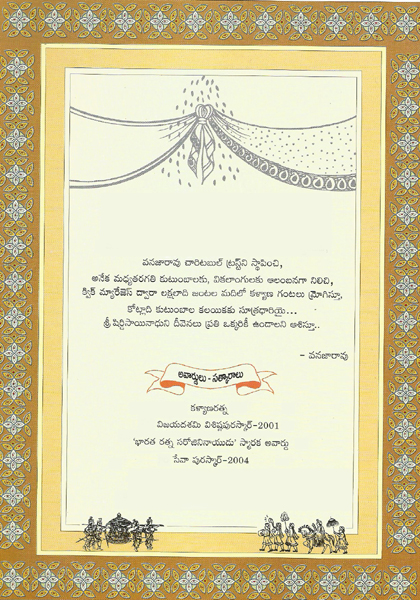 వనజారావు చారిటబుల్ ట్రస్ట్‌ని స్థాపించి,
అనేక మధ్యతరగతి కుటుంబాలకు, వికలాంగులకు ఆలంబనగా నిలిచి,
క్విక్ మ్యారేజెస్ ద్వారా లక్షలాది జంటల మదిలో కళ్యాణ గంటలు మ్రోగిస్తూ,
కోట్లాది కుటుంబాల కలయికకు సూత్రధారియై...
శ్రీ షిర్డిసాయినాధుని దీవెనలు ప్రతి ఒక్కరికీ ఉండాలని ఆశిస్తూ..
- వనజారావు
అవార్డులు - సత్కారాలు
కళ్యాణరత్న
విజయదశమి విశిష్టపురస్కార్-2001
'భారత రత్న సరోజినినాయుడు' స్మారక అవార్డు
సేవా పురస్కార్-2004